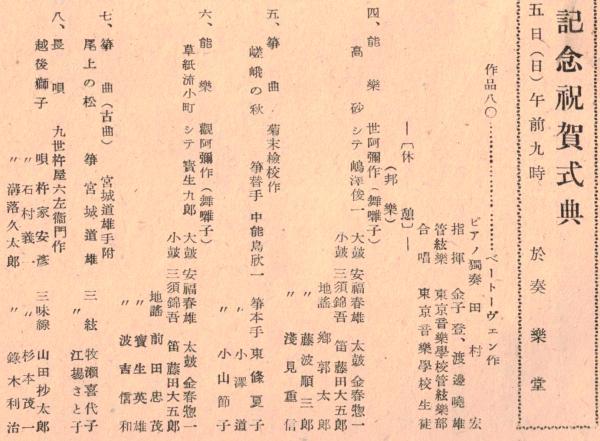 記念祝賀式典
五日(日)午前九時 於奏樂堂
作品八〇………………ベートーヴェン作
ピアノ獨奏 田村宏
指揮 金子登、渡邊曉雄
管絃樂 東京音樂學校管絃樂部
合唱 東京音樂學校生徒
―〔休憩〕―
(邦樂)
四、能樂 世阿彌作(舞囃子)
高砂 シテ 嶋澤俊一 大鼓 安福春雄 太鼓 金春惣一
小鼓 三須錦吾 笛 藤田大五郎
地謠 鄕郭太郎
〃 藤波順三郎
〃 淺見重信
五、箏曲 菊末檢校作
嵯峨の秋 箏替手 中能島欣一 箏本手 東條夏子
〃 小澤道
〃 小山節子
六、能樂 觀阿彌作(舞囃子)
草紙流小町 シテ 寶生九郎 大鼓 安福春雄 太鼓 金春惣一
小鼓 三須錦吾 笛 藤田大五郎
地謠 前田忠茂
〃 寶生英雄
〃 波吉信和
七、箏曲(古曲) 宮城道雄手附
尾上の松 箏 宮城道雄 三絃 牧瀨喜代子
〃 江場さと子
八、長唄 九世杵屋六左衞門作
越後獅子 唄 杵家安彥 三味線 山田抄太郎
〃 石村義一 〃 杉本茂一
〃 溝落久太郎 〃 錄木利治